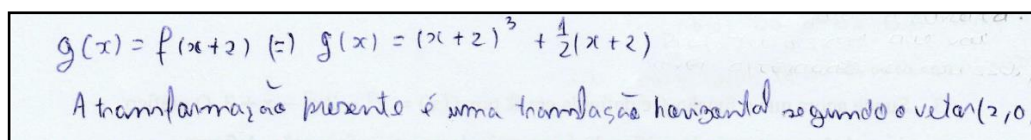 g(x) = f(x+2) (=) g(x) = (x+2)³ + ½(x+2)
A transformação presente é uma translação horizontal segundo o vetor (2,0